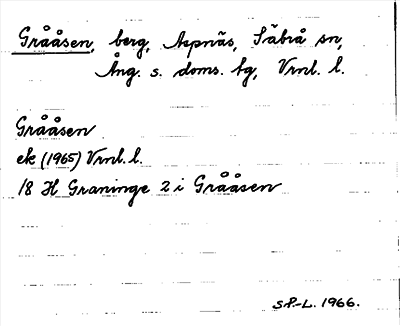 Grååsen, berg, Aspnäs, Säbrå sn,
Ång. s. doms. tg, Vrnl. l.
Grååsen
ek (1965) Vrnl. l.
18 H Graninge 2 i Grååsen
S.P.-L. 1966.